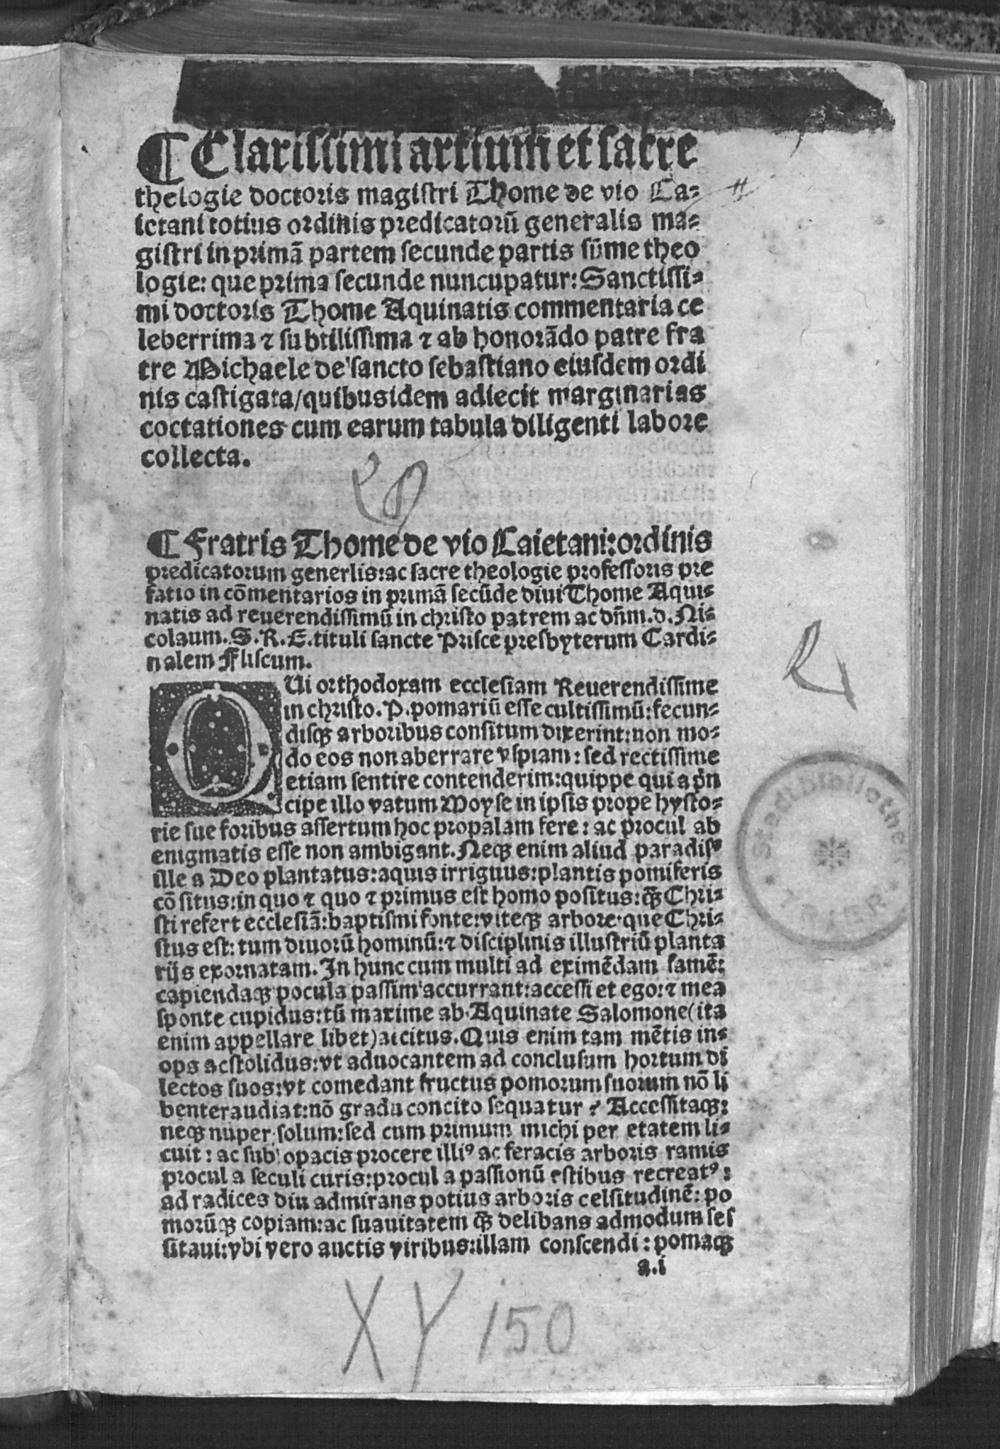 ¶ Clarissimi artium et sacre
thelogie doctoris magistri Thome de vio Ca-
ietani totius ordinis predicatorū generalis ma-
gistri in primā partem secunde partis sūme theo
logie: que prima secunde nuncupatur: Sanctissi-
mi doctoris Thome Aquinatis commentaria ce
leberrima ⁊ subtilissima ⁊ ab honorādo patre fra
tre Michaele de sancto sebastiano eiusdem ordi
nis castigata/quibus idem adiecit marginarias
coctationes cum earum tabula diligenti labore
collecta.
¶ Fratris Thome de vio Caietani: ordinis
predicatorum generlis: ac sacre theologie professoris pre
fatio in cōmentarios in primā secūde diui Thome Aqui-
natis ad reuerendissimū in christo patrem ac dñm. d. Ni-
colaum. S. R. E. tituli sancte Prisce presbyterum Cardi-
nalem Fliscum.
QUi orthodoxam ecclesiam Reuerendissime
in christo. P. pomariū esse cultissimū: fecun-
disqꝫ arboribus consitum dixerint: non mo-
do eos non aberrare vspiam: sed rectissime
etiam sentire contenderim: quippe qui a prin
cipe illo vatum Moyse in ipsis prope hysto-
rie sue foribus assertum hoc propalam fere: ac procul ab
enigmatis esse non ambigant. Neqꝫ enim aliud paradisꝰ
ille a Deo plantatus: aquis irriguus: plantis pomiferis
cōsitus: in quo ⁊ quo ⁊ primus est homo positus: qꝫ̄ Chri-
sti refert ecclesiā: baptismi fonte: viteqꝫ arbore que Chri-
stus est: tum diuorū hominū: ⁊ disciplinis illustriū planta
rijs exornatam. In hunc cum multi ad eximēdam famē:
capiendaqꝫ pocula passim accurrant: accessi et ego: ⁊ mea
sponte cupidus: tū maxime ab Aquinate Salomone (ita
enim appellare libet) aicitus. Quis enim tam mētis in-
ops ac stolidus: vt aduocantem ad conclusum hortum di
lectos suos: vt comedant fructus pomorum suorum nō li
benter audiat: nō gradu concito sequatur? Accessitaqꝫ:
neqꝫ nuper solum: sed cum primum michi per etatem li-
cuit: ac sub opacis procere illiꝰ ac feracis arboris ramis
procul a seculi curis: procul a passionū estibus recreatꝰ:
ad radices diu admirans potius arboris celsitudinē: po
morūqꝫ copiam: ac suauitatem qꝫ̄ delibans admodum ses
sitaui: vbi vero auctis viribus: illam conscendi: pomaqꝫ
a.i
XY 150
Stadtbibliothe
TRIER